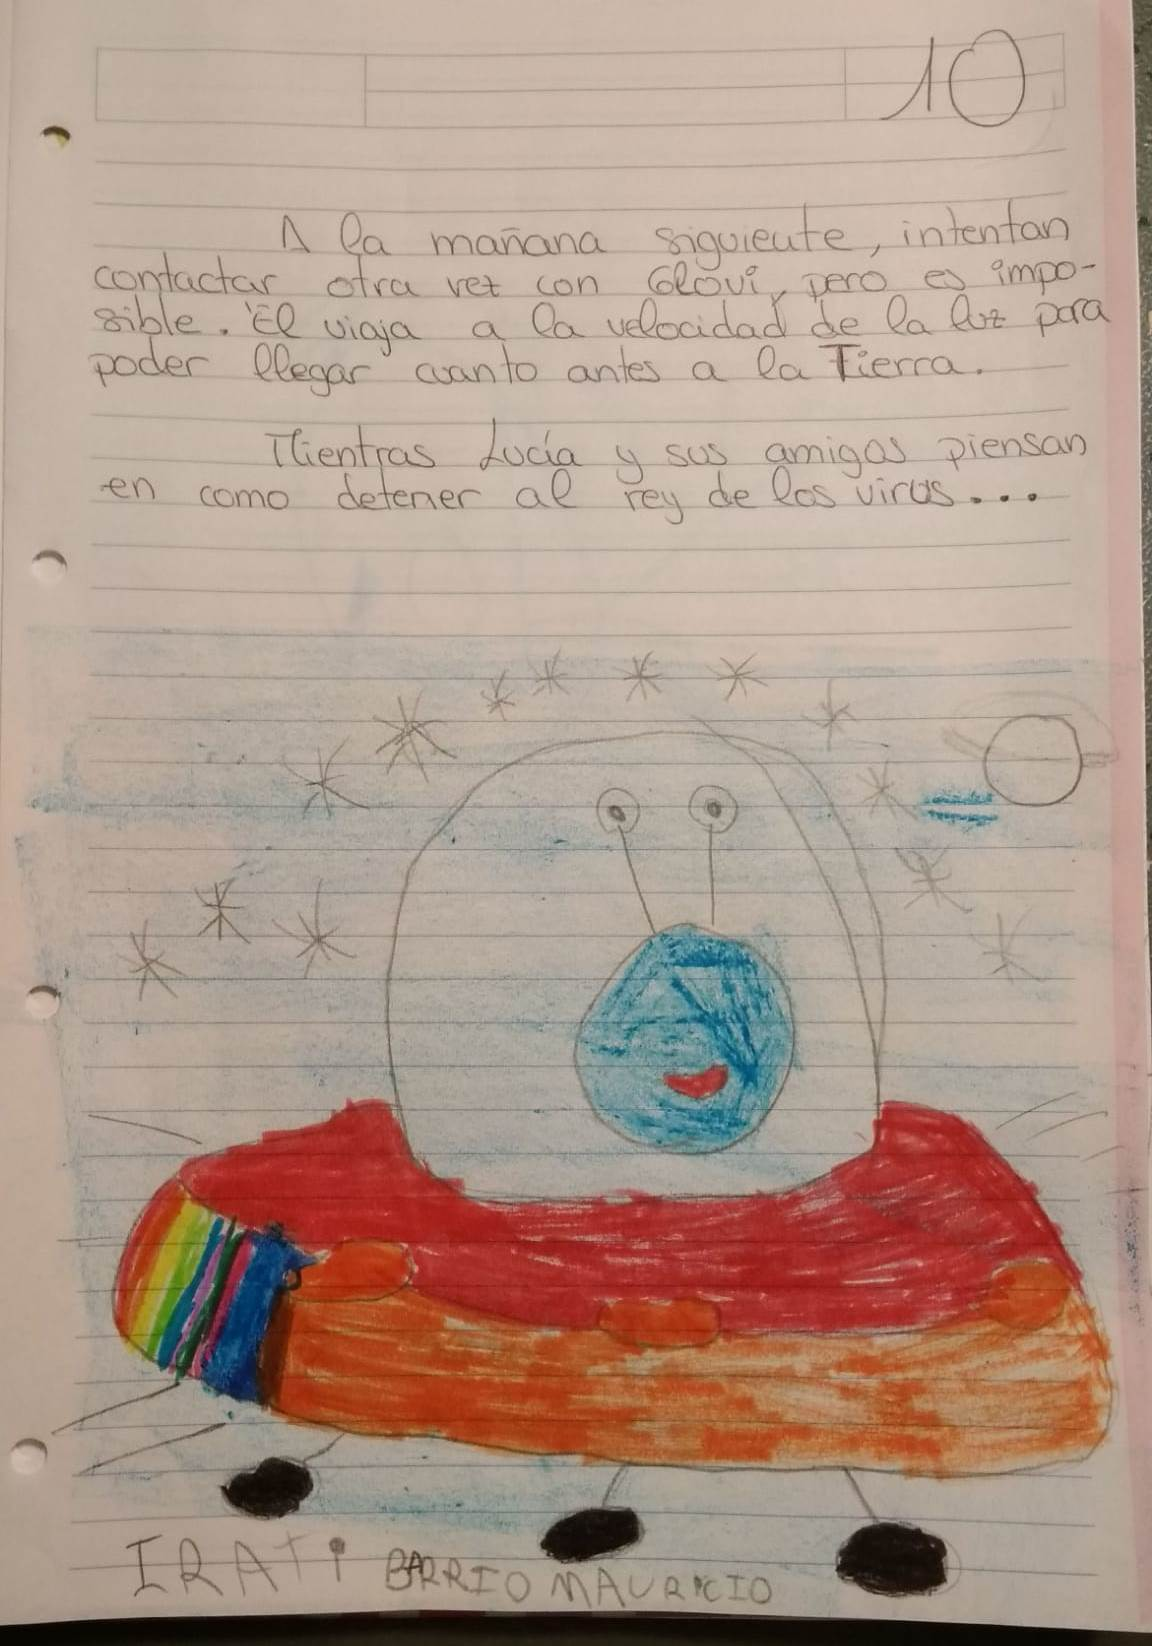 10
A la mañana siguiente, intentan
contactar otra vez con Glovi, pero es impo-
sible. Él viaja a la velocidad de la luz para
poder llegar cuanto antes a la Tierra.
Mientras Lucía y sus amigos piensan
en como detener al rey de los virus...
IRATI BARRIO MAURICIO